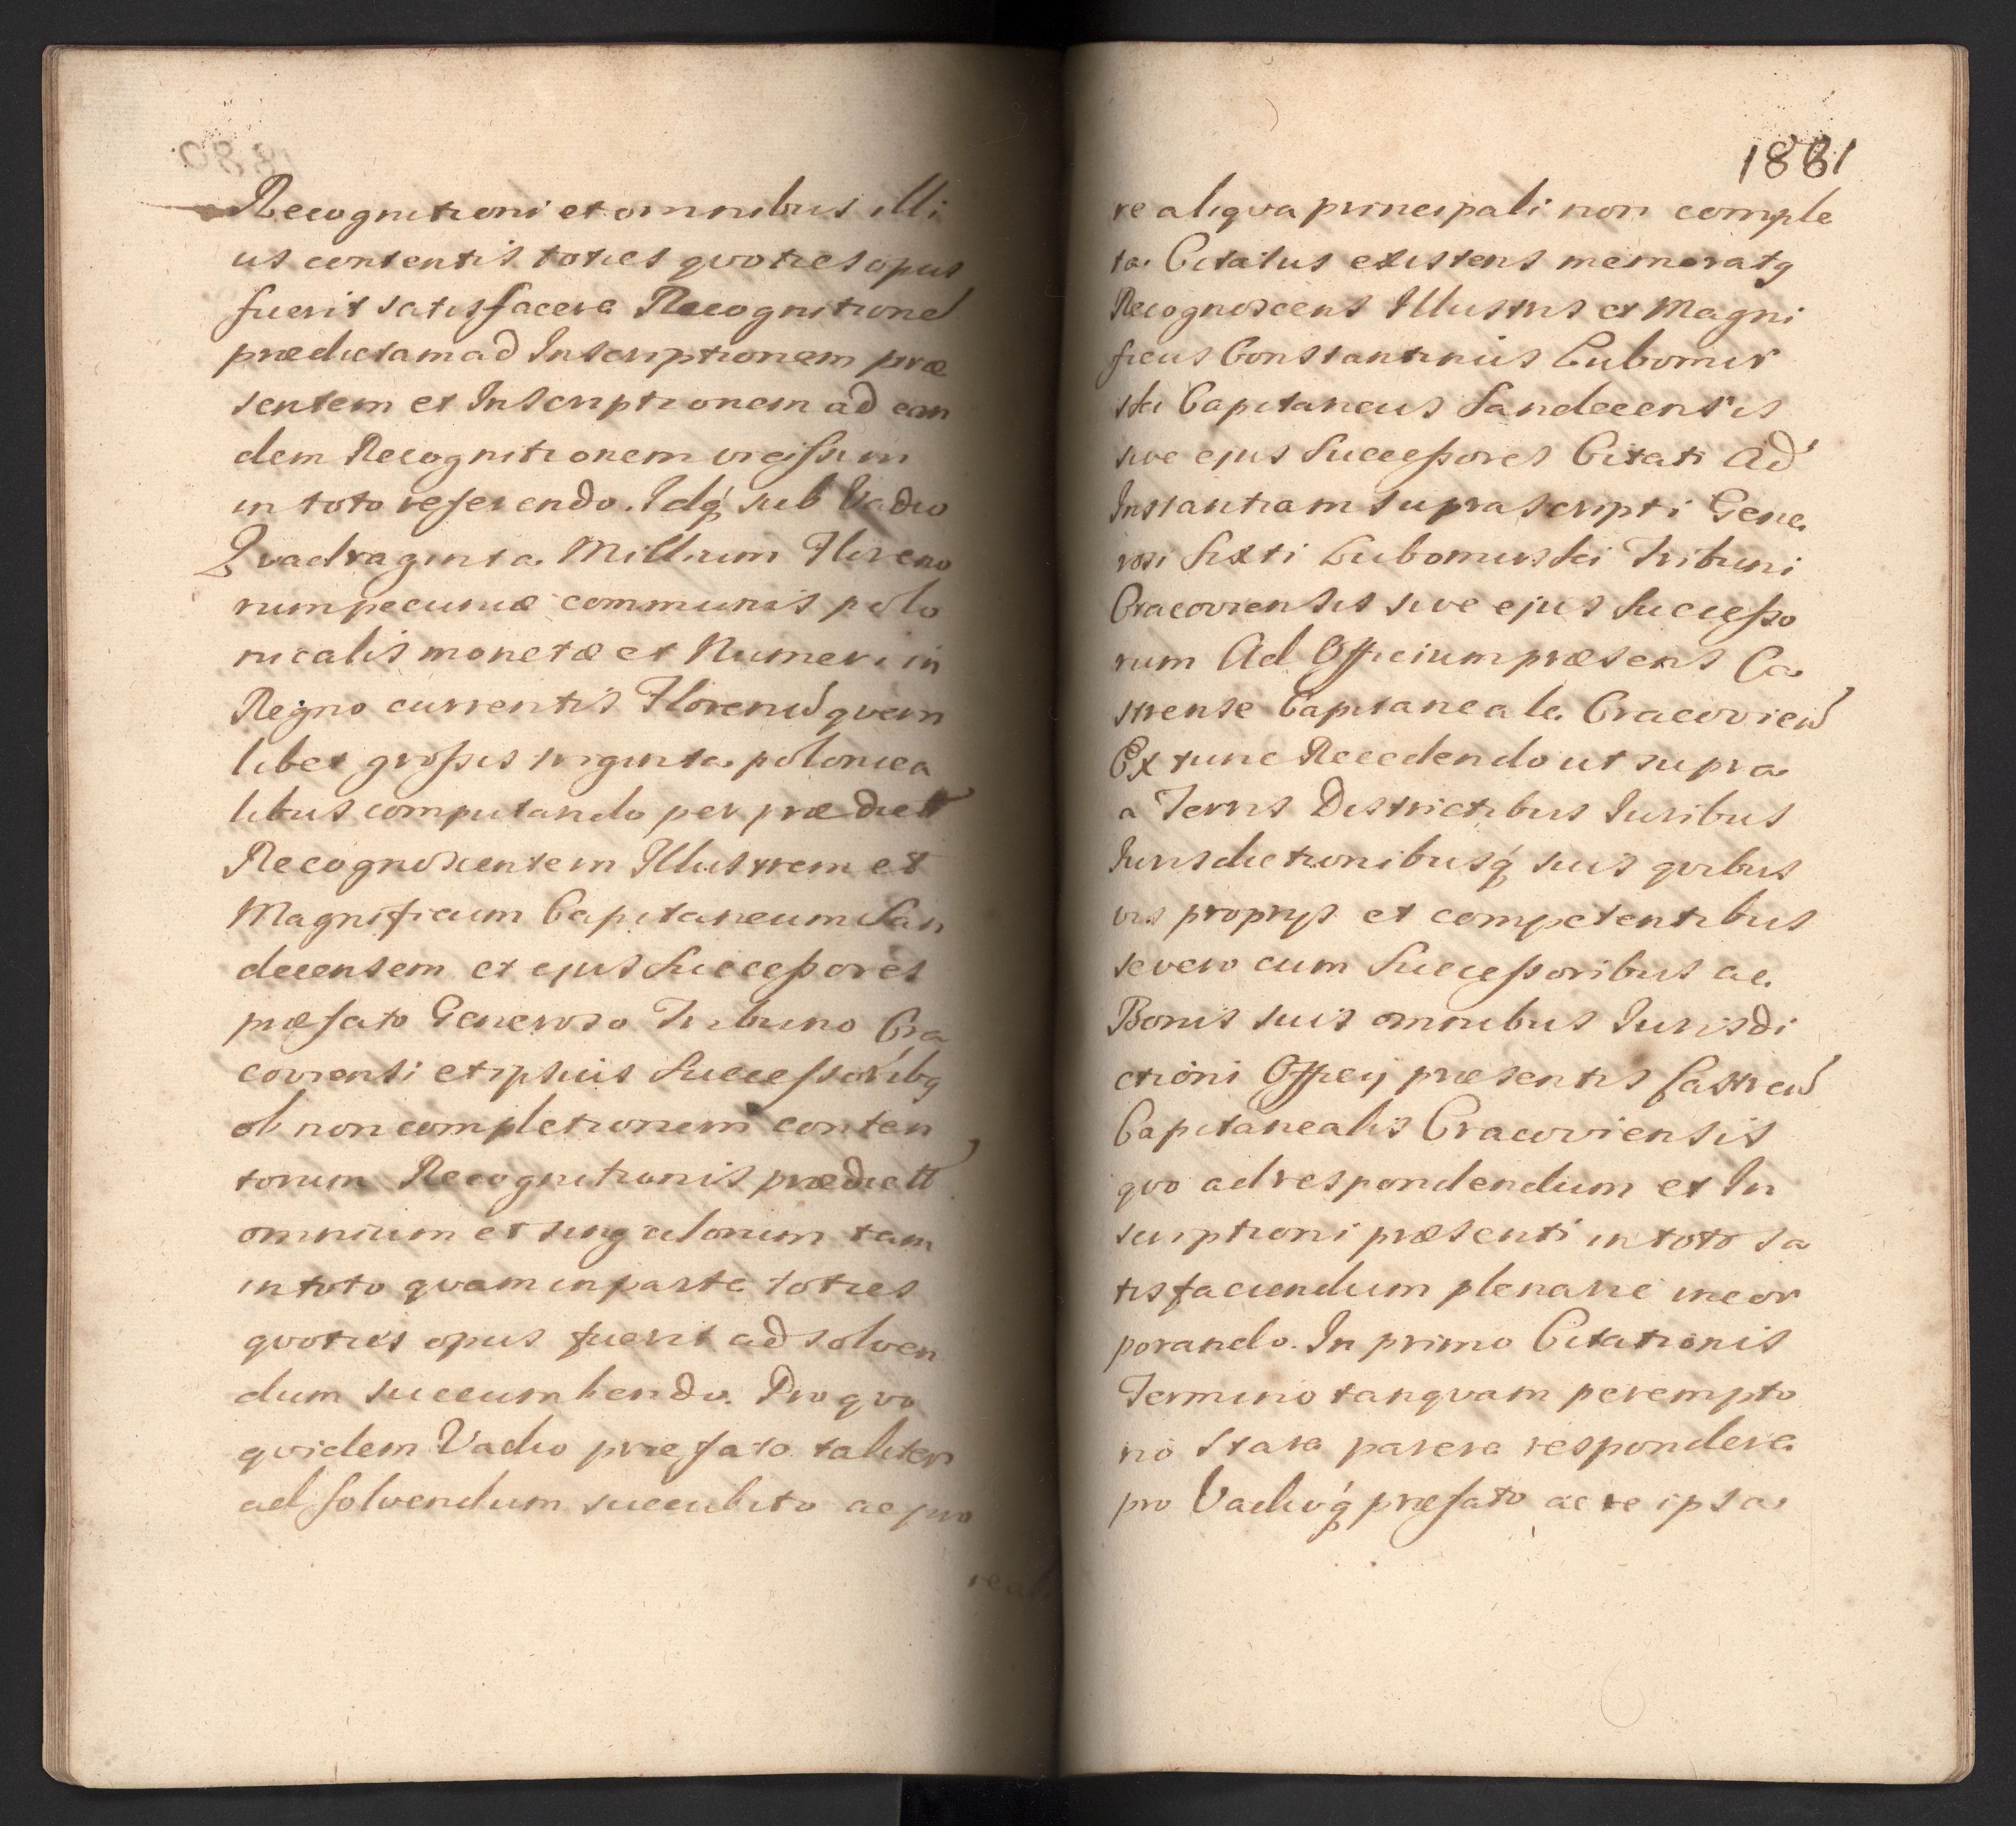 Recognitioni et omnibus illi
us contentis toties qvoties opus
fuerit satisfacere Recognitione
prædictam ad Inscriptionem præ
sentem et Inscriptionem ad ean
dem Recognitionem vicissim
in toto referendo. Idq́ sub Vadio
Qvadraginta Millium Floreno
rum pecuniæ communis polo
nicalis monetæ et Numeri in
Regno currentis Florenú qvem
libet grossis triginta polonica
libus computando per prædictt
Recognoscentem Illustrem et
Magnificum Capitaneum San
decensem et ejus Successores
præfato Generoso Tribuno Cra
coviensi et ipsius Successoribq
ob non completionem conten
torum Recognitionis prædictt
omnium et singulorum tam
in toto qvam in parte toties
qvoties opus fuerit ad solven
dum succumbendo. Pro qvo
qvidem Vadio præfato taliter
ad solvendum succubito ac pro
1881
re aliqva principali non comple
ta Citatus existens memoratq
Recognoscens Illustris et Magni
ficus Constantinus Lubomir
ski Capitaneus Sandecensis
sive ejus Successores Citati Ad
Instantiam suprascripti Gene
rosi Sixti Lubomirski Tribuni
Cracoviensis sive ejus Successo
rum Ad Officium præsens Ca
strense Capitaneale Cracovien
Ex tunc Recedendo ut supra
a Terris Districtibus Iuribus
Iurisdictionibusq́ suis qvibus
vis proprys et competentibus
se vero cum Successoribus ac
Bonis suis omnibus Iurisdi
ctioni Officy præsentis Castren
Capitanealis Cracoviensis
qvo ad respondendum et In
scriptioni præsenti in toto sa
tisfaciendum plenarie incor
porando. In primo Citationis
Termino tanqvam perempto
rio Stare parere respondere
pro Vadioq́ præfato ac re ipsa